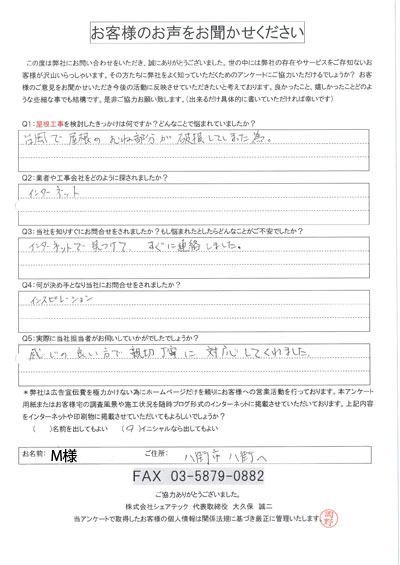 お客様のお声をお聞かせください
この度は弊社にお問い合わせをいただき、誠にありがとうございました。世の中には弊社の存在やサービスをご存知ないお
客様が沢山いらっしゃいます。その方たちに弊社をよく知っていただくためのアンケートにご協力いただけるでしょうか？ お客
様のご意見をお聞かせいただき今後の活動に反映させていただきたいと考えております。良かったこと、嬉しかったことどのよ
うな些細な事でも結構です。是非ご協力お願い致します。（出来るだけ具体的に書いていただければ幸いです）
Q1：屋根工事を検討したきっかけは何ですか？どんなことで悩まれていましたか？
台風で屋根のむね部分が破損してしまった為。
Q2：業者や工事会社をどのように探されましたか？
インターネット
Q3：当社を知りすぐにお問合せをされましたか？もし悩まれたとしたらどんなことがご不安でしたか？
インターネットで見つけて、すぐに連絡しました。
Q4：何が決め手となり当社にお問合せをされましたか？
インスピレーション
Q5：実際に当社担当者がお伺いしていかがでしたでしょうか？
感じの良い方で親切丁寧に対応してくれました。
＊弊社は広告宣伝費を極力かけない為にホームページだけを頼りにお客様への営業活動を行っております。本アンケート
用紙またはお客様宅の調査風景や施工状況を随時ブログ形式のインターネットに掲載させていただいております。上記内容
をインターネットや印刷物に掲載させていただいてもよろしいでしょうか？
（ ）名前を出してもよい （○）イニシャルなら出してもよい
お名前： M様 ご住所： 八街市 八街へ
FAX 03-5879-0882
ご協力ありがとうございました。
株式会社シェアテック 代表取締役 大久保 誠二
当アンケートで取得したお客様の個人情報は関係法規に基づき厳正に管理いたします。